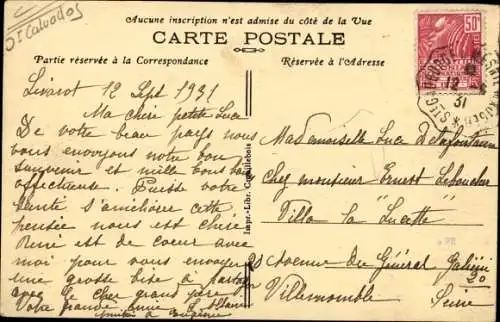 Dt Calvados
Aucune inscription n'est admise du côté de la Vue
CARTE POSTALE
Partie réservée à la Correspondance
Réservée à l'Adresse
50c
12
31
Livarot 12 Sept 1931
Ma chère petite Luce
De votre beau pays nous
vous envoyons notre bon
souvenir et mille bons
affectueux. Puisse votre
santé s'améliorer cette
pensée nous est chère
René est de cœur avec
moi pour vous envoyer
une grosse bise à partager
avec le cher grand père
Votre grande amie
Amitiés à Eugénie
Impr.-Libr. Cornillebois
Mademoiselle Luce Delafontaine
chez monsieur Ernest Leboucher
Villa "la Lucette"
28 Avenue du Général Galiéni
Villemomble
20
Seine